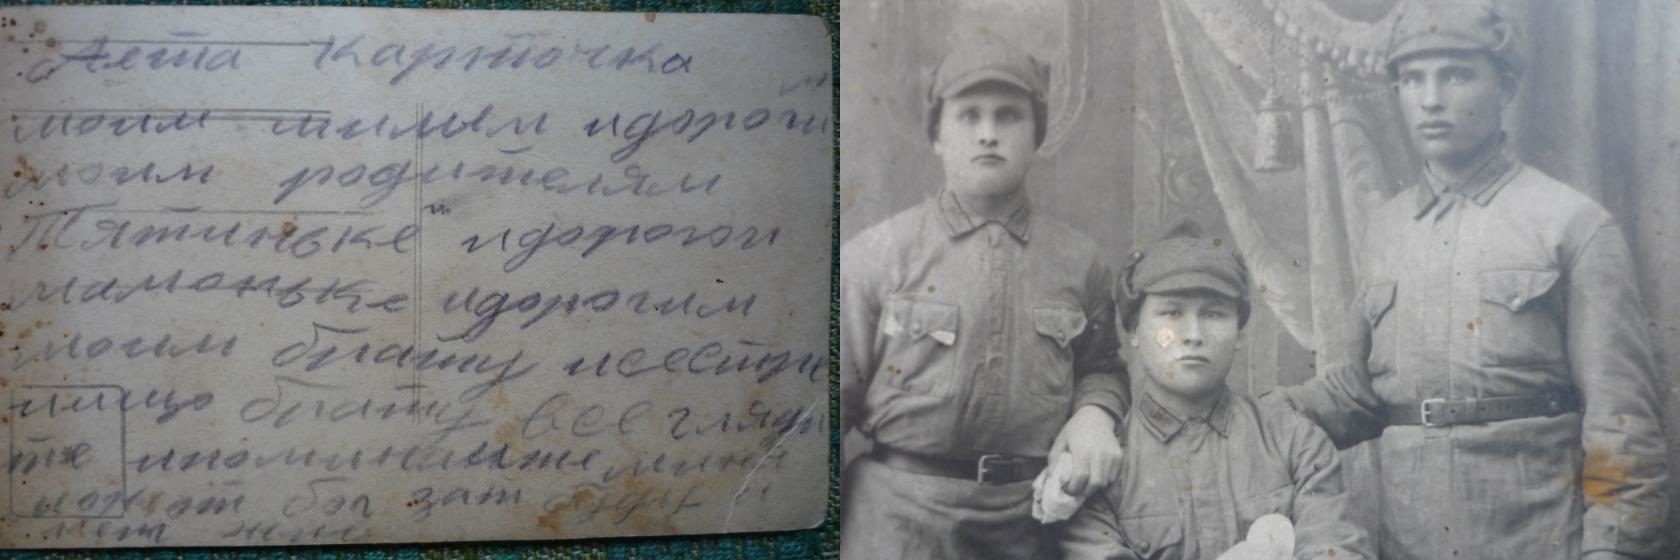 Аета карточка
моим милым идороги
моим родителям
Тятиньке идорогои
мамоньке идорогим
моим брату исестри
брату все гляди
те ипоминаите мини
может бог зат буду